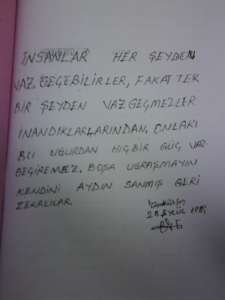 İNSANLAR HER ŞEYDEN
VAZ GEÇEBİLİRLER, FAKAT TEK
BİR ŞEYDEN VAZ GEÇMEZLER
İNANDIKLARLARINDAN. ONLARI
BU UĞURDAN HİÇBİR GÜÇ VAZ-
GEÇİREMEZ. BOŞA UĞRAŞMAYIN
KENDİNİ AYDIN SANMIŞ GERİ
ZEKALILAR.
28 EYLÜL